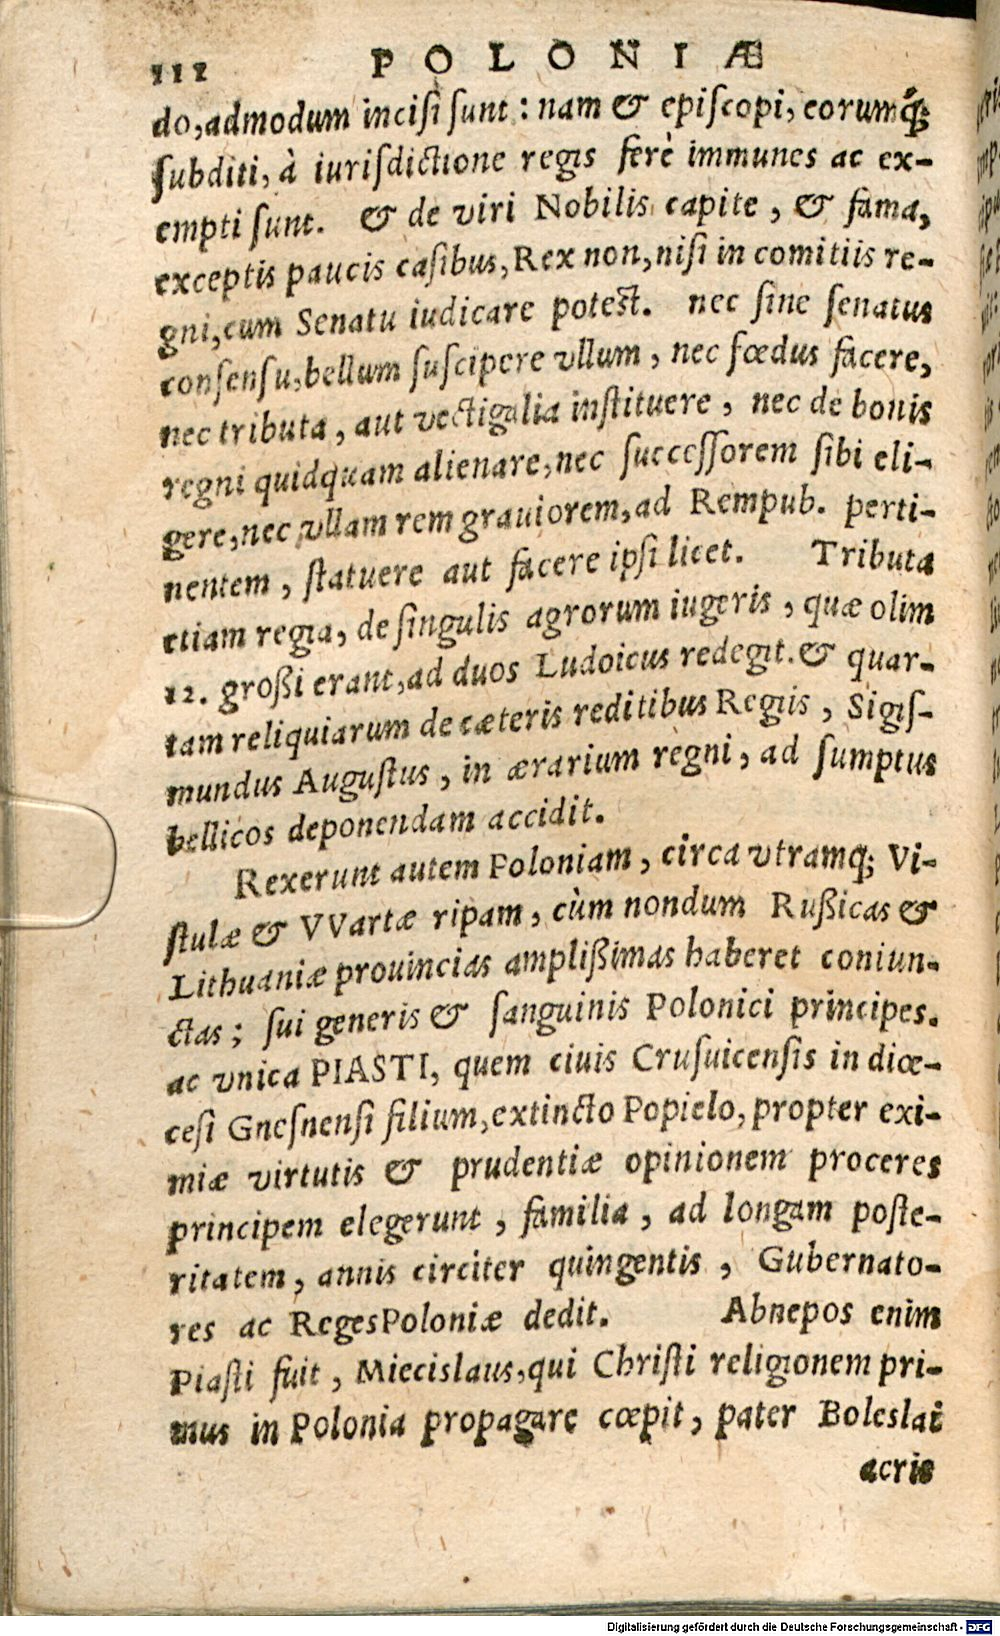 112 POLONIÆ
do,admodum incisi sunt: nam & episcopi, eorumq́;
ſubditi, à iuriſdictione regis ferè immunes ac ex-
empti ſunt. & de viri Nobilis capite, & fama,
exceptis paucis caſibus, Rex non, niſi in comitiis re-
gni, cum Senatu iudicare poteſt. nec ſine ſenatus
conſenſu, bellum ſuſcipere vllum, nec fœdus facere,
nec tributa, aut vectigalia inſtituere, nec de bonis
regni quidquam alienare, nec ſucceſſorem ſibi eli-
gere, nec vllam rem grauiorem, ad Rempub. perti-
nentem, ſtatuere aut facere ipſi licet. Tributa
etiam regia, de ſingulis agrorum iugeris, quæ olim
12. großi erant, ad duos Ludoicus redegit. & quar-
tam reliquiarum de cæteris reditibus Regiis, Sigiſ-
mundus Auguſtus, in ærarium regni, ad ſumptus
bellicos deponendam accidit.
Rexerunt autem Poloniam, circa vtramq; Vi-
ſtulæ & VVartæ ripam, cùm nondum Rußicas &
Lithuaniæ prouincias amplißimas haberet coniun-
ctas; ſui generis & ſanguinis Polonici principes.
ac vnica PIASTI, quem ciuis Cruſuicenſis in diœ-
ceſi Gneſnenſi filium, extincto Popielo, propter exi-
miæ virtutis & prudentiæ opinionem proceres
principem elegerunt, familia, ad longam poſte-
ritatem, annis circiter quingentis, Gubernato-
res ac Reges Poloniæ dedit. Abnepos enim
Piaſti fuit, Miecislaus, qui Chriſti religionem pri-
mus in Polonia propagare cœpit, pater Boleslai
acris
Digitalisierung gefördert durch die Deutsche Forschungsgemeinschaft - DFG